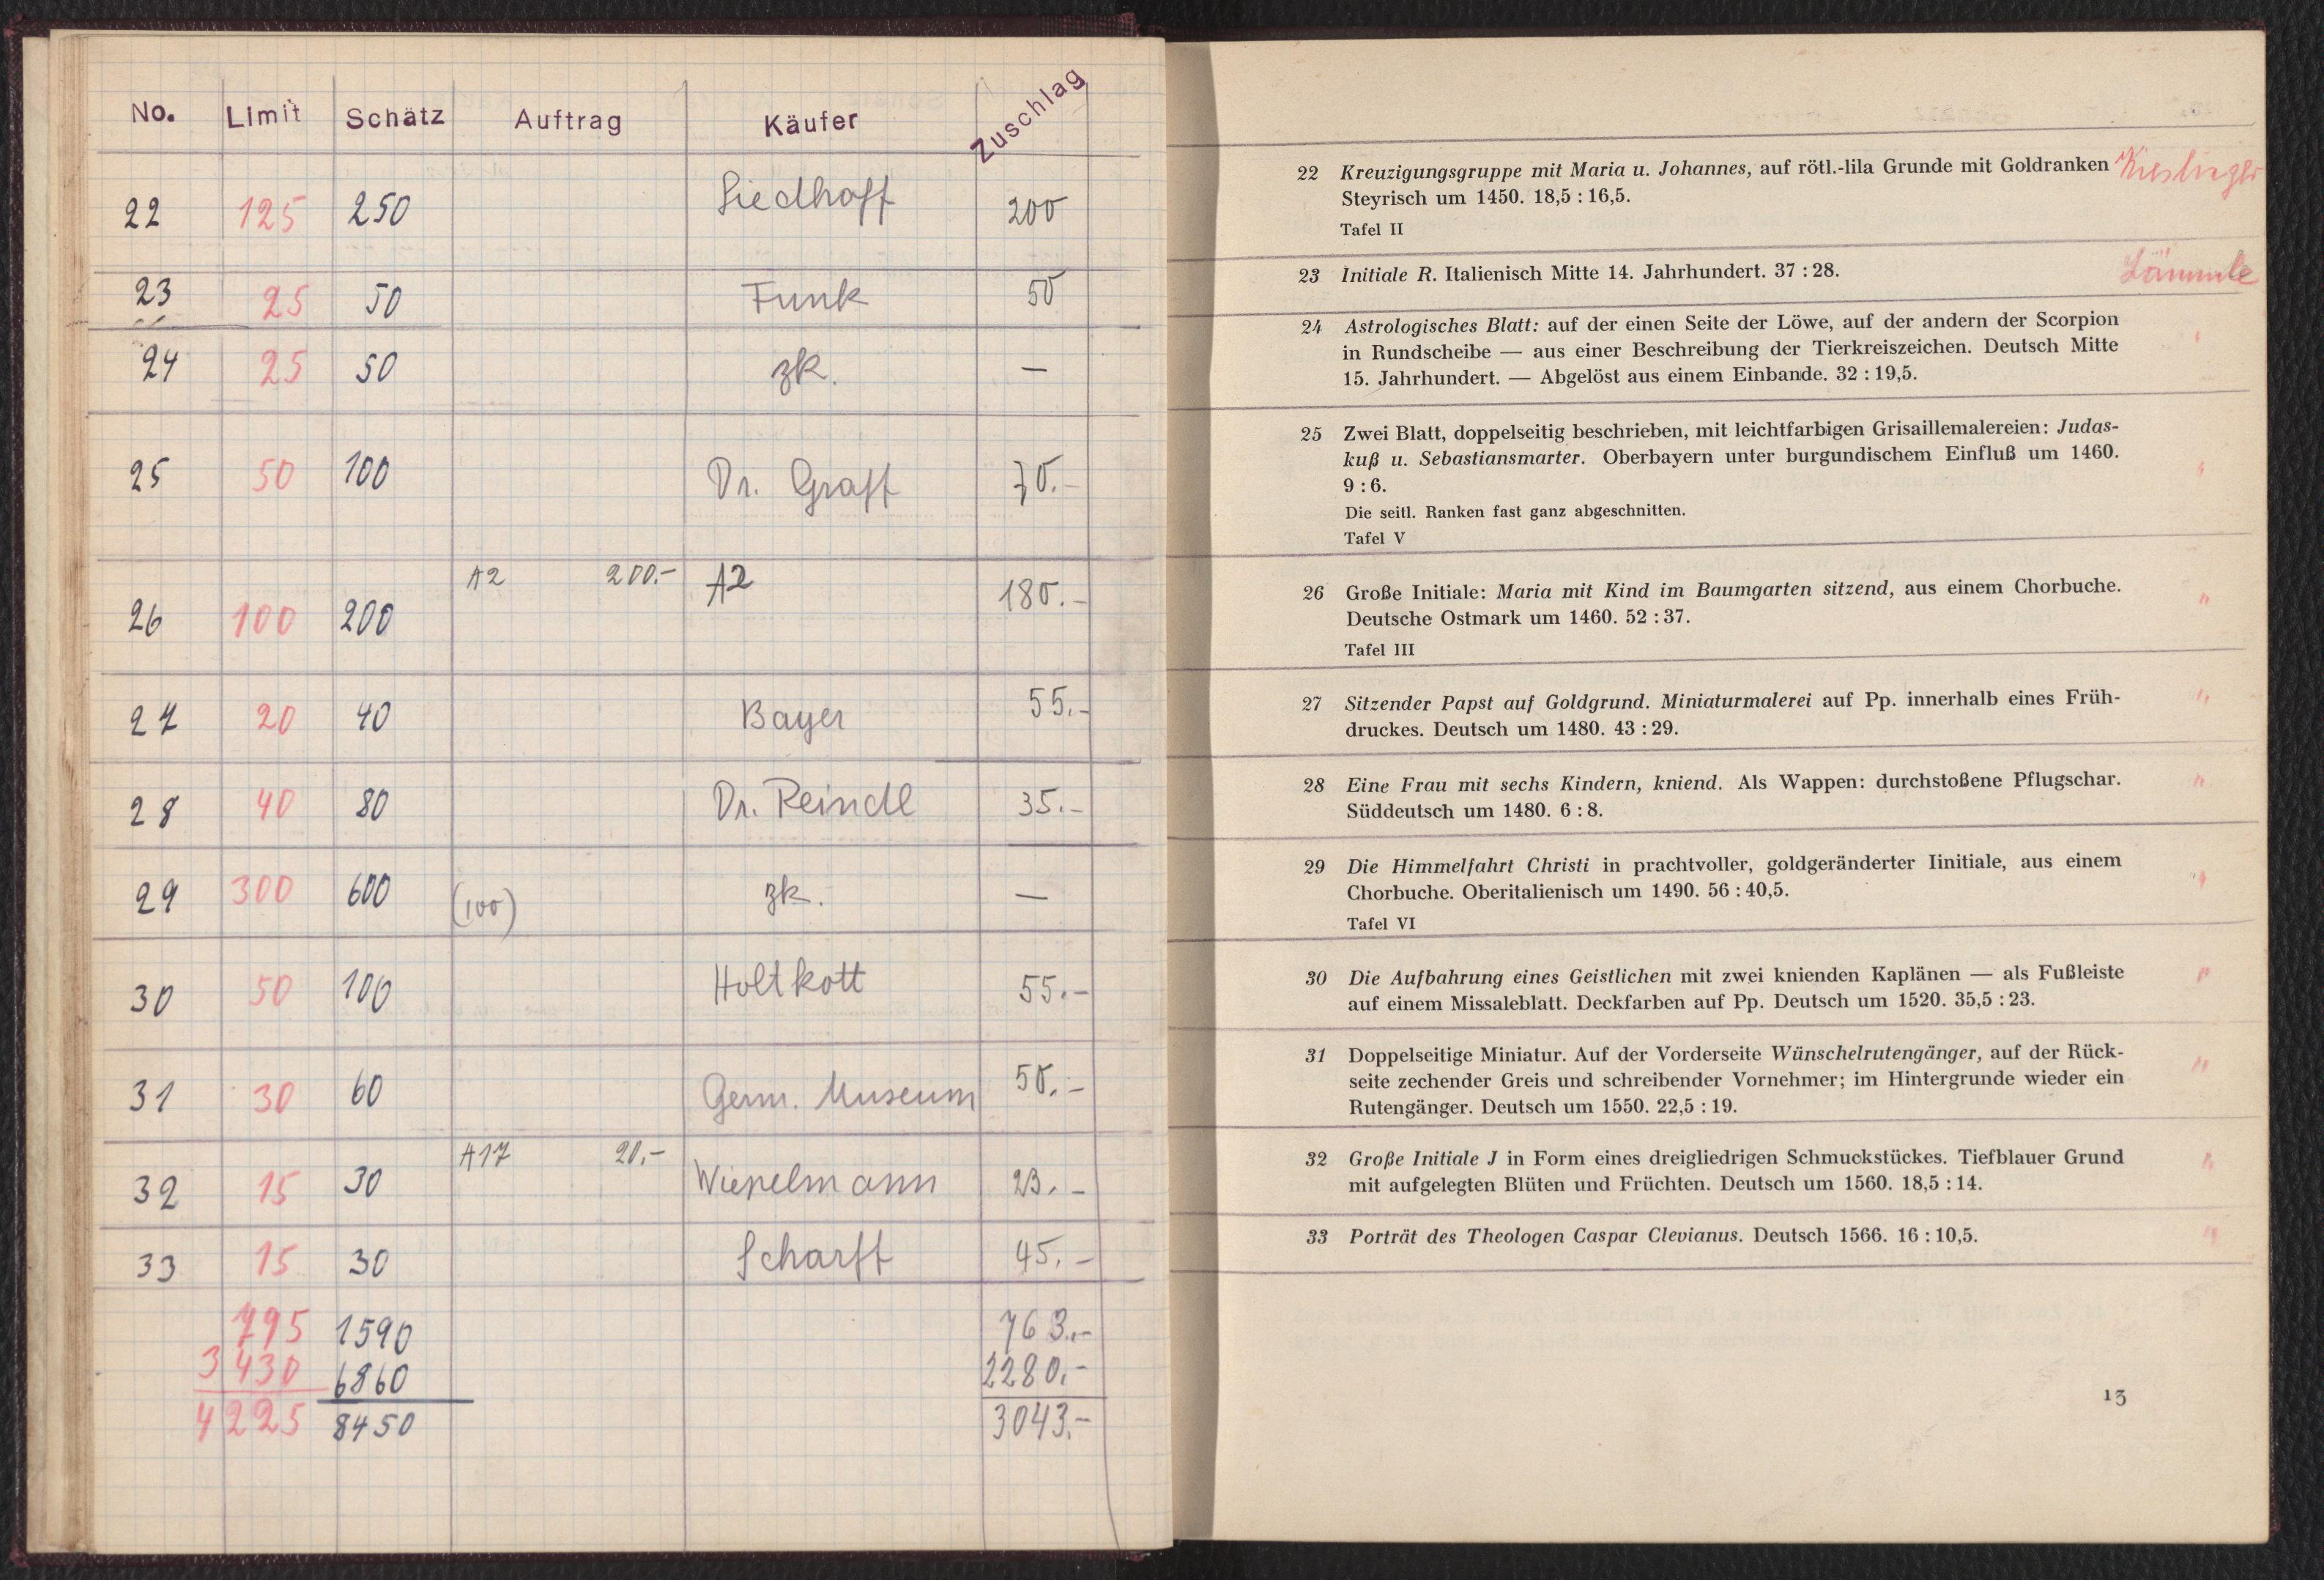 No. Limit Schätz Auftrag Käufer Zuschlag
22 125 250 Siedhoff 200
23 25 50 Funk 50
24 25 50 zk. —
25 50 100 Dr. Graff 70.-
26 100 200 A2 200.- A2 180.-
27 20 40 Bayer 55.-
28 40 80 Dr. Reindl 35.-
29 300 600 (100) zk. —
30 50 100 Holtkott 55.-
31 30 60 Germ. Museum 50.-
32 15 30 A17 20,- 23.-
33 15 30 Scharff 45.-
795 1590 763.-
3430 6860 2280.-
4225 8450 3043.-
22 Kreuzigungsgruppe mit Maria u. Johannes, auf rötl.-lila Grunde mit Goldranken
Steyrisch um 1450. 18,5 : 16,5.
Tafel II
23 Initiale R. Italienisch Mitte 14. Jahrhundert. 37 : 28. Lämmle
24 Astrologisches Blatt: auf der einen Seite der Löwe, auf der andern der Scorpion
in Rundscheibe — aus einer Beschreibung der Tierkreiszeichen. Deutsch Mitte
15. Jahrhundert. — Abgelöst aus einem Einbande. 32 : 19,5.
25 Zwei Blatt, doppelseitig beschrieben, mit leichtfarbigen Grisaillemalereien: Judas-
kuß u. Sebastiansmarter. Oberbayern unter burgundischem Einfluß um 1460.
9 : 6.
Die seitl. Ranken fast ganz abgeschnitten.
Tafel V
26 Große Initiale: Maria mit Kind im Baumgarten sitzend, aus einem Chorbuche. "
Deutsche Ostmark um 1460. 52 : 37.
Tafel III
27 Sitzender Papst auf Goldgrund. Miniaturmalerei auf Pp. innerhalb eines Früh- "
druckes. Deutsch um 1480. 43 : 29.
28 Eine Frau mit sechs Kindern, kniend. Als Wappen: durchstoßene Pflugschar. "
Süddeutsch um 1480. 6 : 8.
29 Die Himmelfahrt Christi in prachtvoller, goldgeränderter Iinitiale, aus einem "
Chorbuche. Oberitalienisch um 1490. 56 : 40,5.
Tafel VI
30 Die Aufbahrung eines Geistlichen mit zwei knienden Kaplänen — als Fußleiste "
auf einem Missaleblatt. Deckfarben auf Pp. Deutsch um 1520. 35,5 : 23.
31 Doppelseitige Miniatur. Auf der Vorderseite Wünschelrutengänger, auf der Rück- "
seite zechender Greis und schreibender Vornehmer; im Hintergrunde wieder ein
Rutengänger. Deutsch um 1550. 22,5 : 19.
32 Große Initiale J in Form eines dreigliedrigen Schmuckstückes. Tiefblauer Grund "
mit aufgelegten Blüten und Früchten. Deutsch um 1560. 18,5 : 14.
33 Porträt des Theologen Caspar Clevianus. Deutsch 1566. 16 : 10,5. "
13